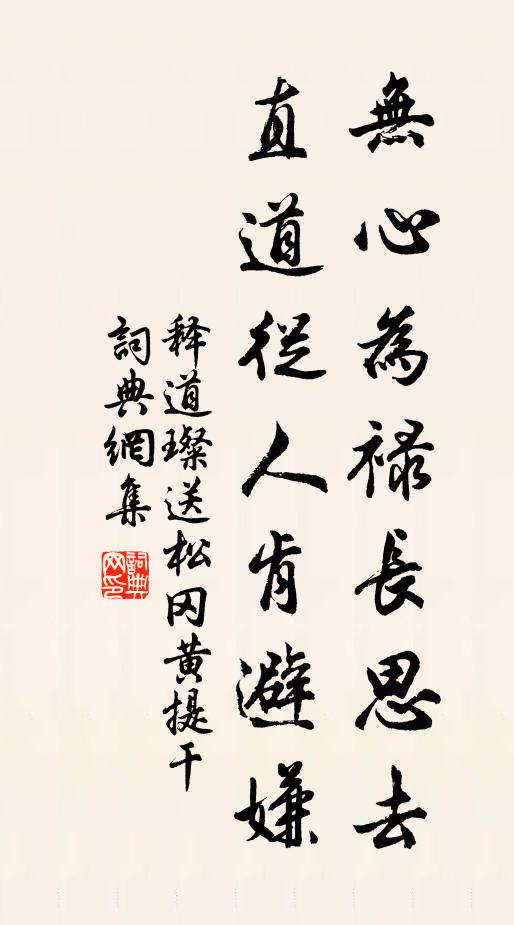 無心為禄長思去
直道從人肯避嫌
释道璨送松冈黄提干
詞典網集
詞典网印